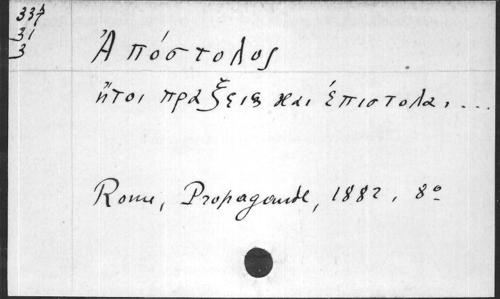 337
31
3
Ἀπόστολος
ἤτοι πράξεις και ἐπιστολαι ...
Rome, Propagande, 1882, 8º